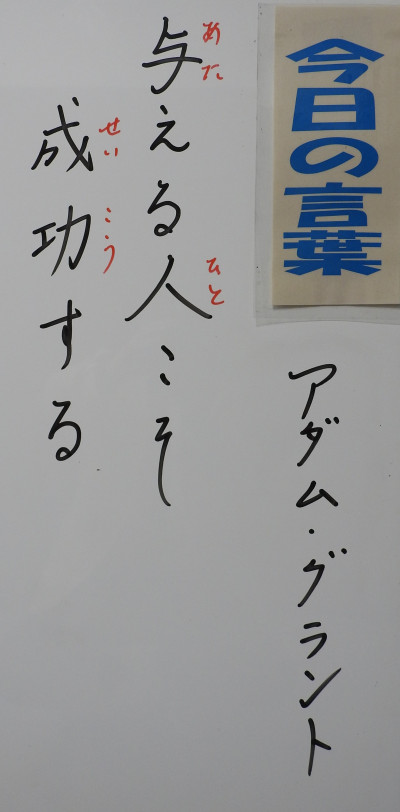 今日の言葉
アダム・グラント
あた ひと
与える人こそ
せいこう
成功する